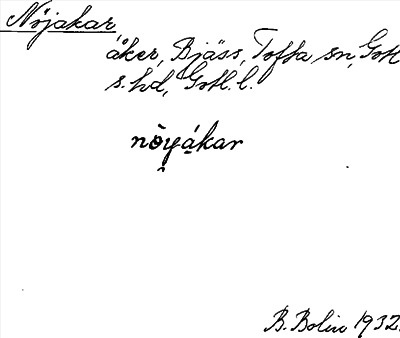 Nöjakar,
åker, Bjäss, Tofta sn, Gotl
s. hd, Gotl. l.
nòyákar
B. Bolin 1932.